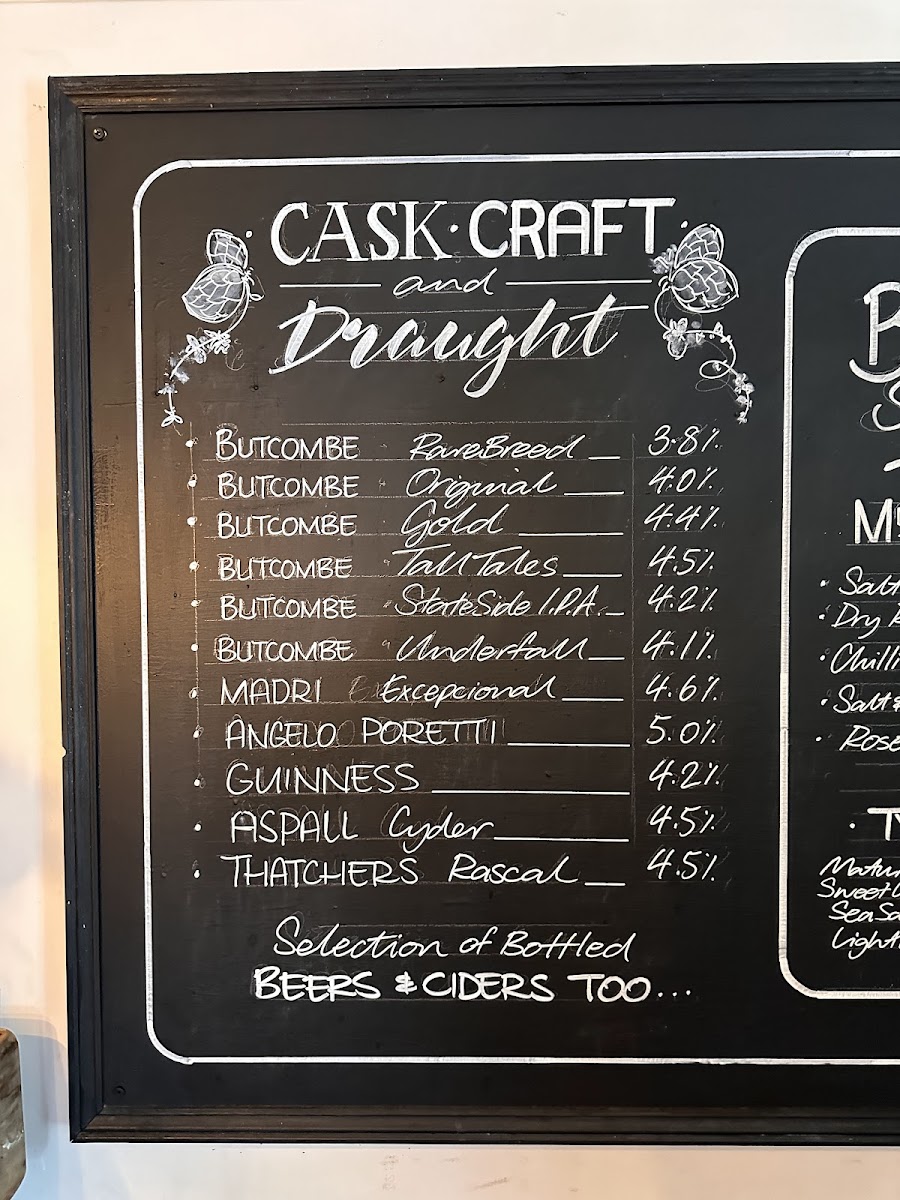 CASK · CRAFT
and
Draught
• BUTCOMBE RareBreed 3.8%
• BUTCOMBE Original 4.0%
• BUTCOMBE Gold 4.4%
• BUTCOMBE Tall Tales 4.5%
• BUTCOMBE StateSide I.P.A. 4.2%
• BUTCOMBE Underfall 4.1%
• MADRI Excepcional 4.6%
• ANGELO PORETTI 5.0%
• GUINNESS 4.2%
• ASPALL Cyder 4.5%
• THATCHERS Rascal 4.5%
Selection of Bottled
BEERS & CIDERS TOO...
B
S
• Salt
• Dry
• Chilli
• Salt &
• Rose
Sweet
Sea Sa
Light